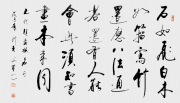 石如飛白木
如籀寫竹
還應八法通
若還有人能
會此須知書
畫本來同